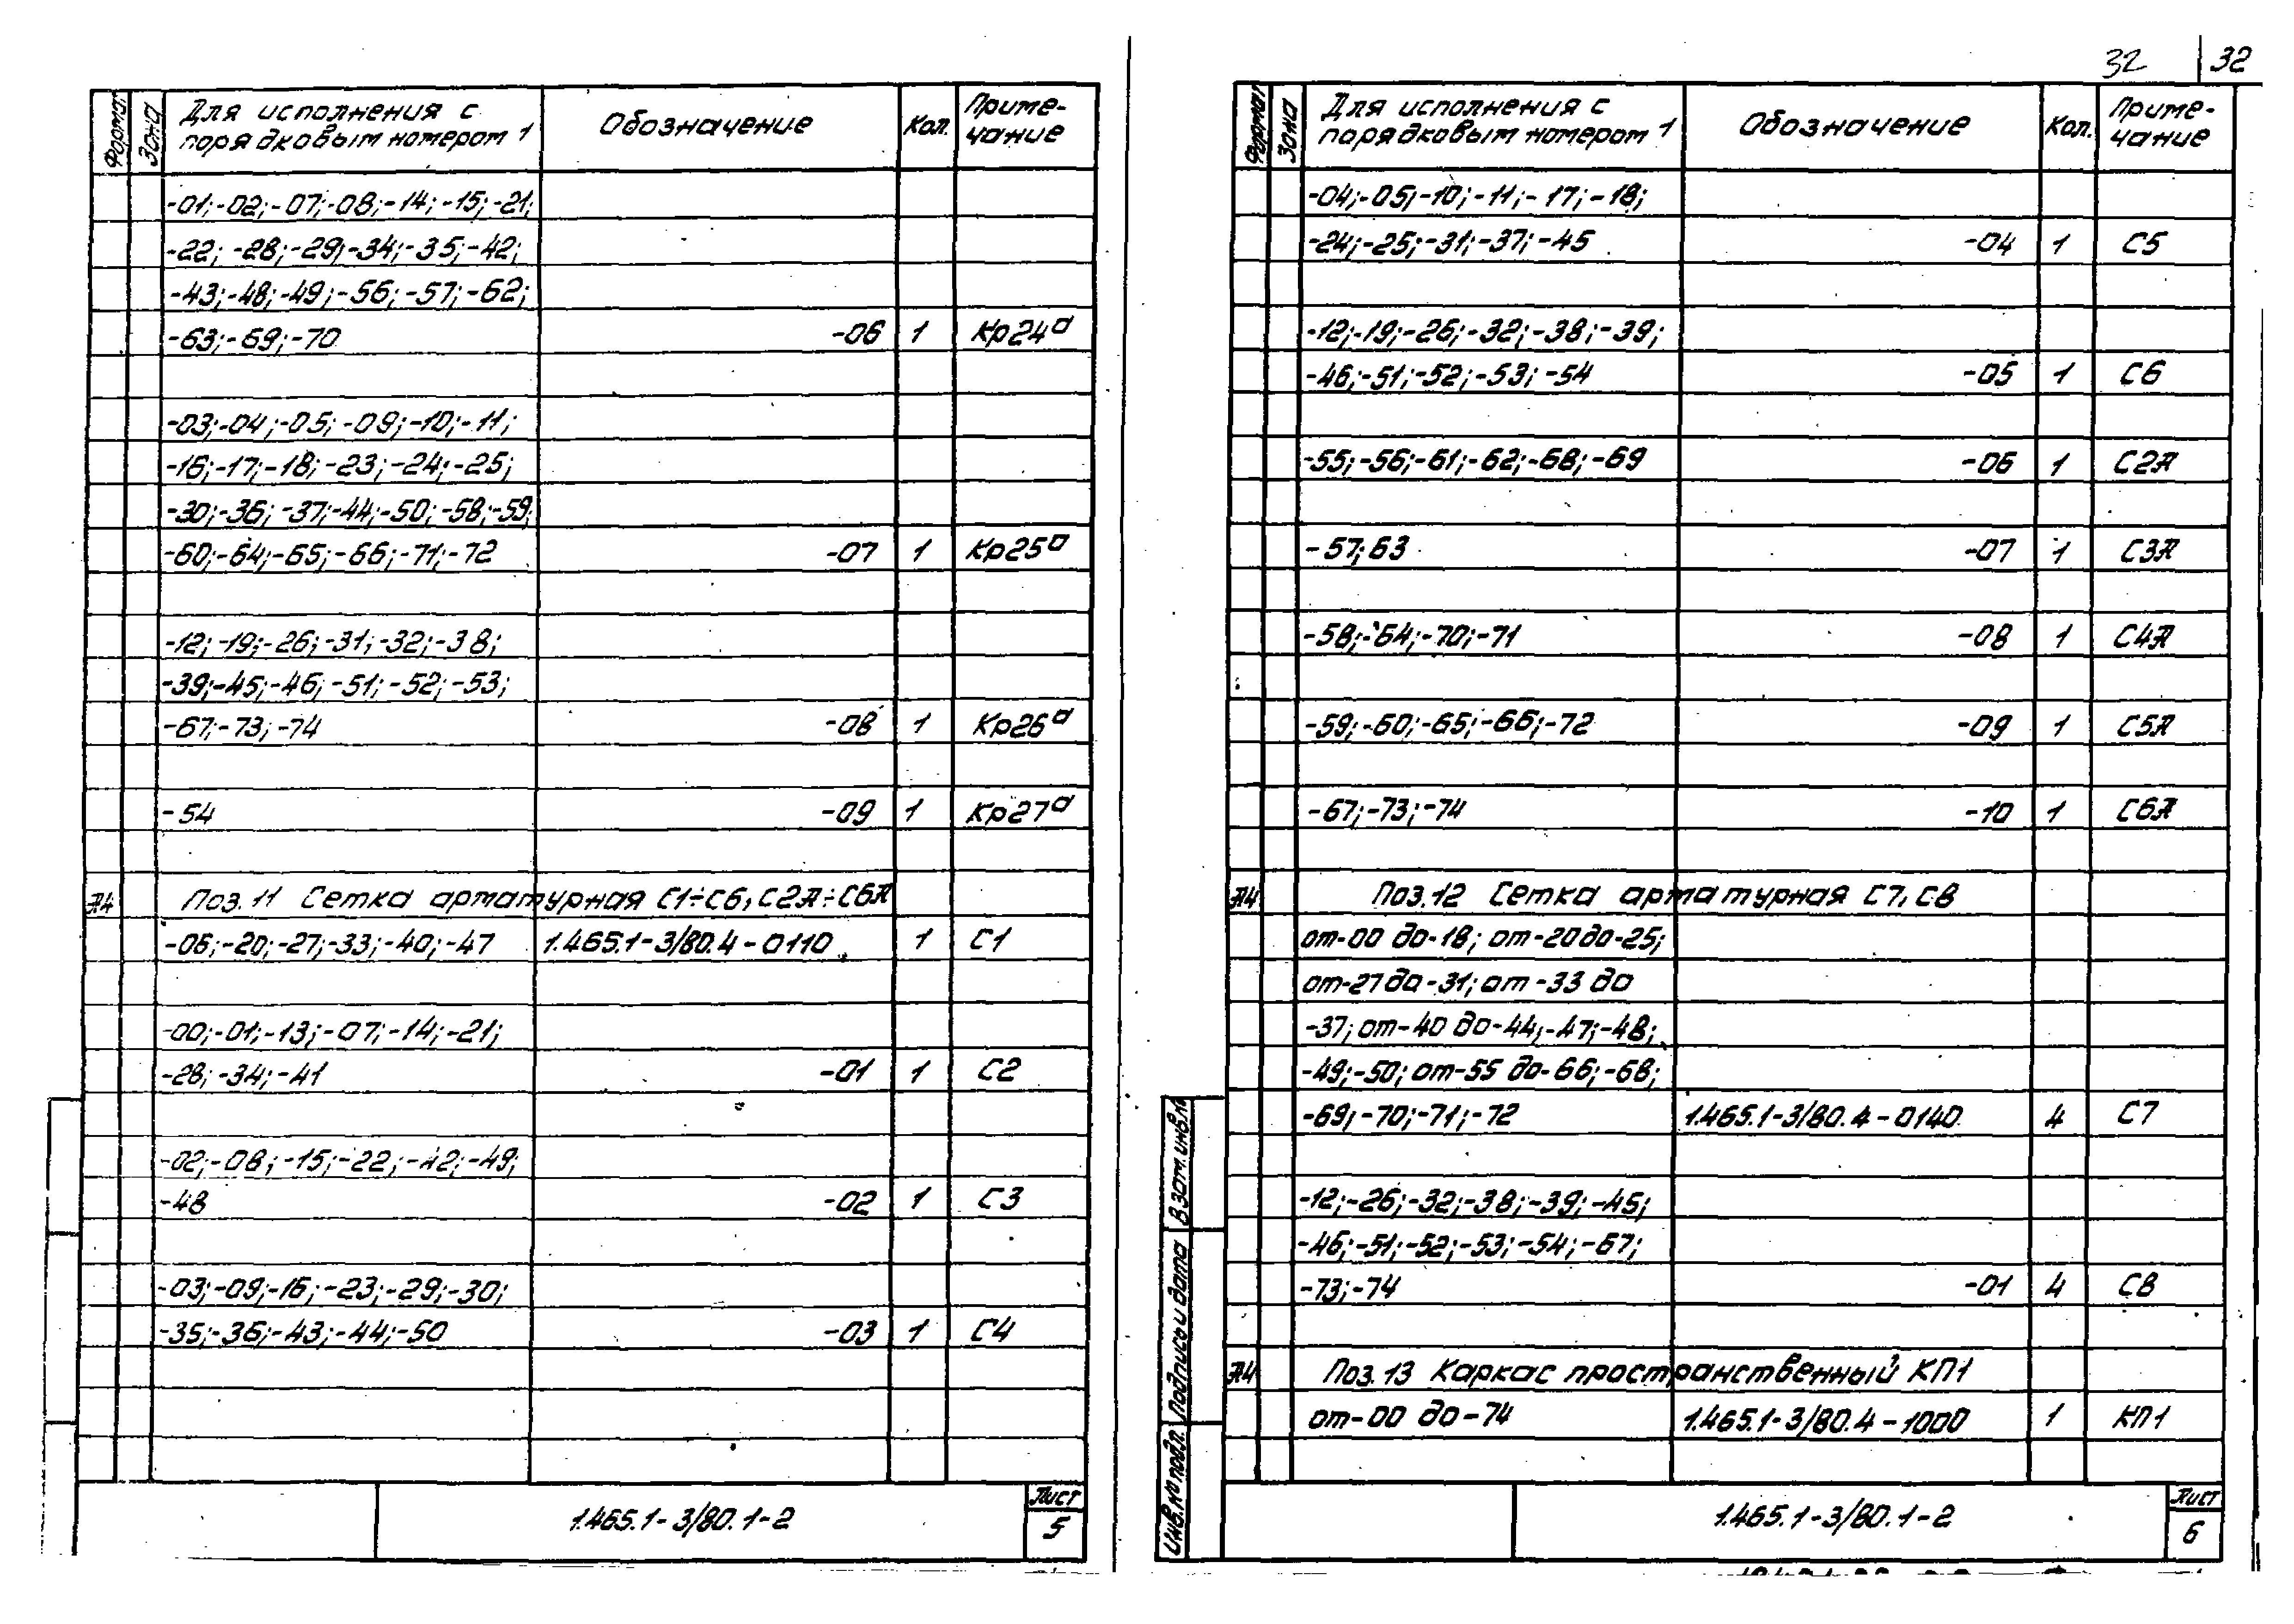 32 32
Формат Зона Для исполнения с порядковым номером 1 Обозначение Кол. Примечание
-01;-02;-07;-08;-14;-15;-21;
-22; -28;-29;-34;-35;-42;
-43;-48;-49;-56;-57;-62;
-63;-69;-70 -06 1 Кр24а
-03;-04;-05;-09;-10;-11;
-16;-17;-18;-23;-24;-25;
-30;-36;-37;-44;-50;-58;-59;
-60;-64;-65;-66;-71;-72 -07 1 Кр25а
-12;-19;-26;-31;-32;-38;
-39;-45;-46;-51;-52;-53;
-67;-73;-74 -08 1 Кр26а
-54 -09 1 Кр27а
А4 Поз. 11 Сетка арматурная С1÷С6, С2А÷С6А
-06;-20;-27;-33;-40;-47 1.465.1-3/80.4-0110 1 С1
-00;-01;-13;-07;-14;-21;
-28;-34;-41 -01 1 С2
-02;-08;-15;-22;-42;-49;
-48 -02 1 С3
-03;-09;-16;-23;-29;-30;
-35;-36;-43;-44;-50 -03 1 С4
1.465.1-3/80.1-2 Лист 5
Формат Зона Для исполнения с порядковым номером 1 Обозначение Кол. Примечание
-04;-05;-10;-11;-17;-18;
-24;-25;-31;-37;-45 -04 1 С5
-12;-19;-26;-32;-38;-39;
-46;-51;-52;-53;-54 -05 1 С6
-55;-56;-61;-62;-68;-69 -06 1 С2А
-57;63 -07 1 С3А
-58;-64;-70;-71 -08 1 С4А
-59;-60;-65;-66;-72 -09 1 С5А
-67;-73;-74 -10 1 С6А
А4 Поз. 12 Сетка арматурная С7, С8
от-00 до-18; от-20 до-25;
от-27 до-31; от-33 до
-37; от-40 до-44;-47;-48;
-49;-50; от-55 до-66;-68;
-69;-70;-71;-72 1.465.1-3/80.4-0140 4 С7
-12;-26;-32;-38;-39;-45;
-46;-51;-52;-53;-54;-67;
-73;-74 -01 4 С8
А4 Поз. 13 Каркас пространственный КП1
от-00 до-74 1.465.1-3/80.4-1000 1 КП1
Инв.№ подл. Подпись и дата Взам.инв.№
1.465.1-3/80.1-2 Лист 6